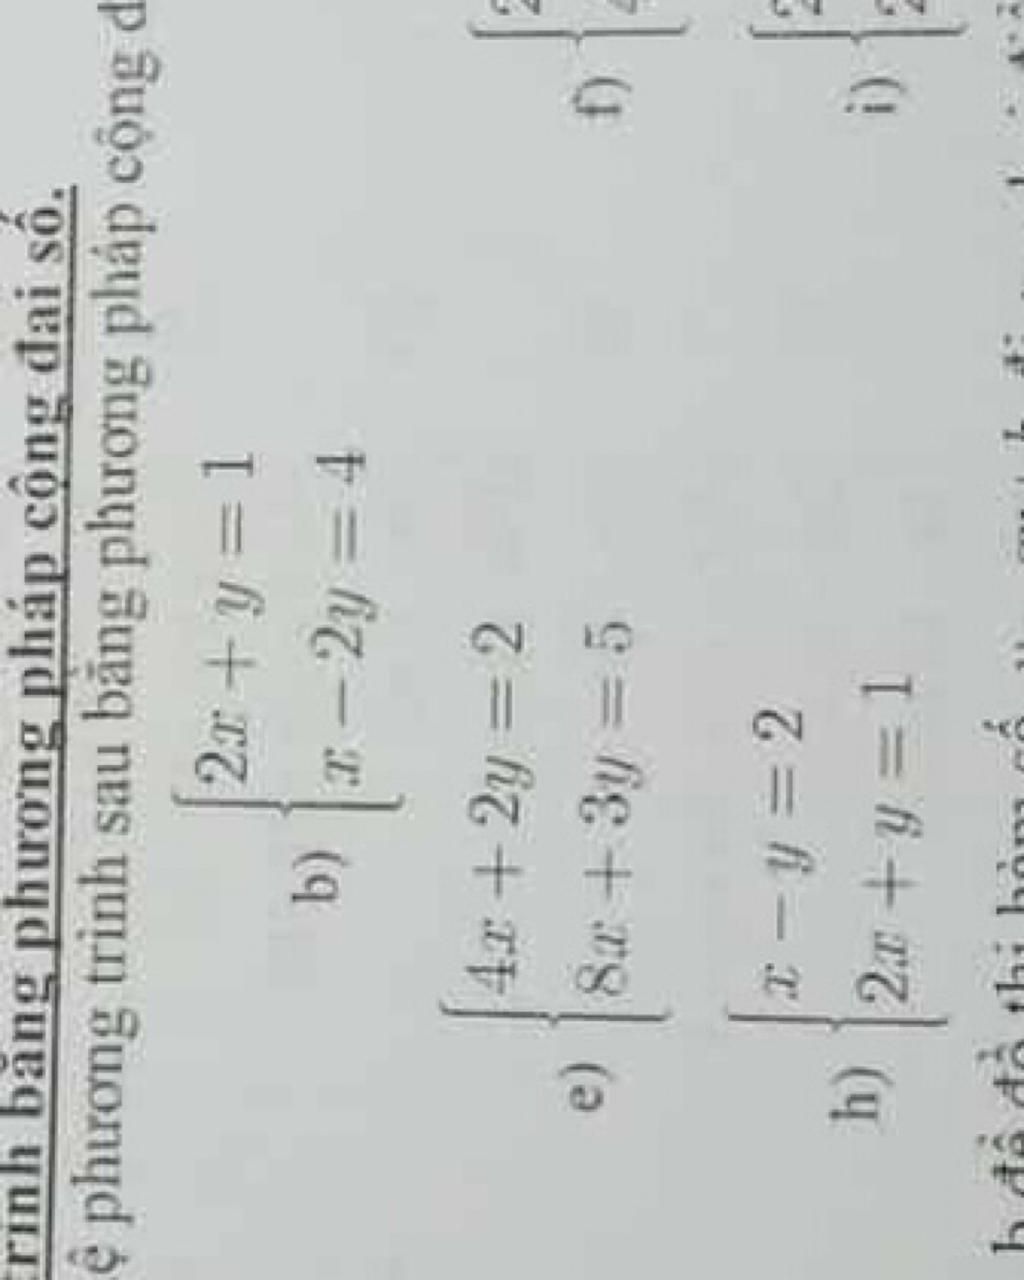 trình bằng phương pháp cộng đại số.
hệ phương trình sau bằng phương pháp cộng
b) { 2x + y = 1
x − 2y = 4
e) { 4x + 2y = 2
8x + 3y = 5
f) {
h) { x − y = 2
2x + y = 1
i) {
đồ thị hàm số